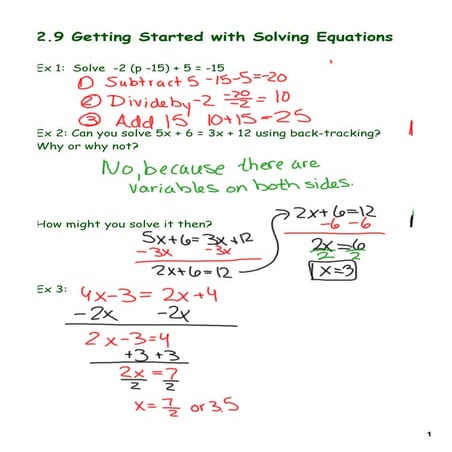 2.9 Getting Started with Solving Equations
Ex 1: Solve -2 (p -15) + 5 = -15
① Subtract 5 -15-5=-20
② Divide by -2 -20/-2 = 10
③ Add 15 10+15=25
Ex 2: Can you solve 5x + 6 = 3x + 12 using back-tracking?
Why or why not?
No, because there are
variables on both sides.
How might you solve it then?
5x+6=3x+12
-3x -3x
2x+6=12
2x+6=12
-6 -6
2x=6
2 2
x=3
Ex 3:
4x-3=2x+4
-2x -2x
2x-3=4
+3 +3
2x=7
2 2
x=7/2 or 3.5
1